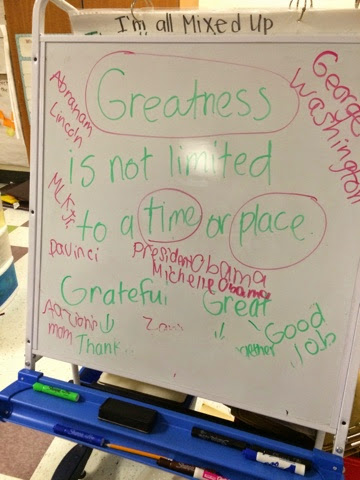 I'm all Mixed Up
Abraham
Lincoln
George
Washington
Greatness
is not limited
MLK Jr.
to a time or place.
DaVinci
President Obama
Michelle Obama
Grateful
Great
mom
Thank
Good
Job